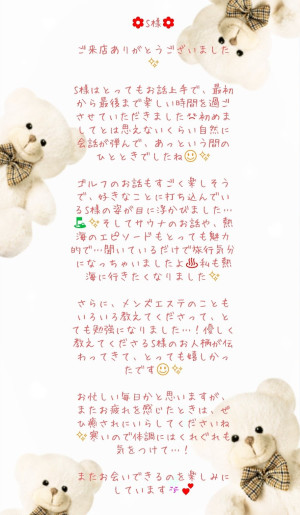 🌺S様🌺
ご来店ありがとうございました
✨
S様はとってもお話上手で、最初
から最後まで楽しい時間を過ご
させていただきました🎶初めま
してとは思えないくらい自然に
会話が弾んで、あっという間の
ひとときでしたね🙂✨
ゴルフのお話もすごく楽しそう
で、好きなことに打ち込んでい
るS様の姿が目に浮かびました…
⛳✨そしてサウナのお話や、熱
海のエピソードもとっても魅力
的で…聞いているだけで旅行気分
になっちゃいましたよ♨私も熱
海に行きたくなりました✨
さらに、メンズエステのことも
いろいろ教えてくださって、と
ても勉強になりました…！優しく
教えてくださるS様のお人柄が伝
わってきて、とっても嬉しかっ
たです🙂✨
お忙しい毎日かと思いますが、
またお疲れを感じたときは、ぜ
ひ癒されにいらしてくださいね
✨寒いので体調にはくれぐれも
気をつけて…！
またお会いできるのを楽しみに
しています💕